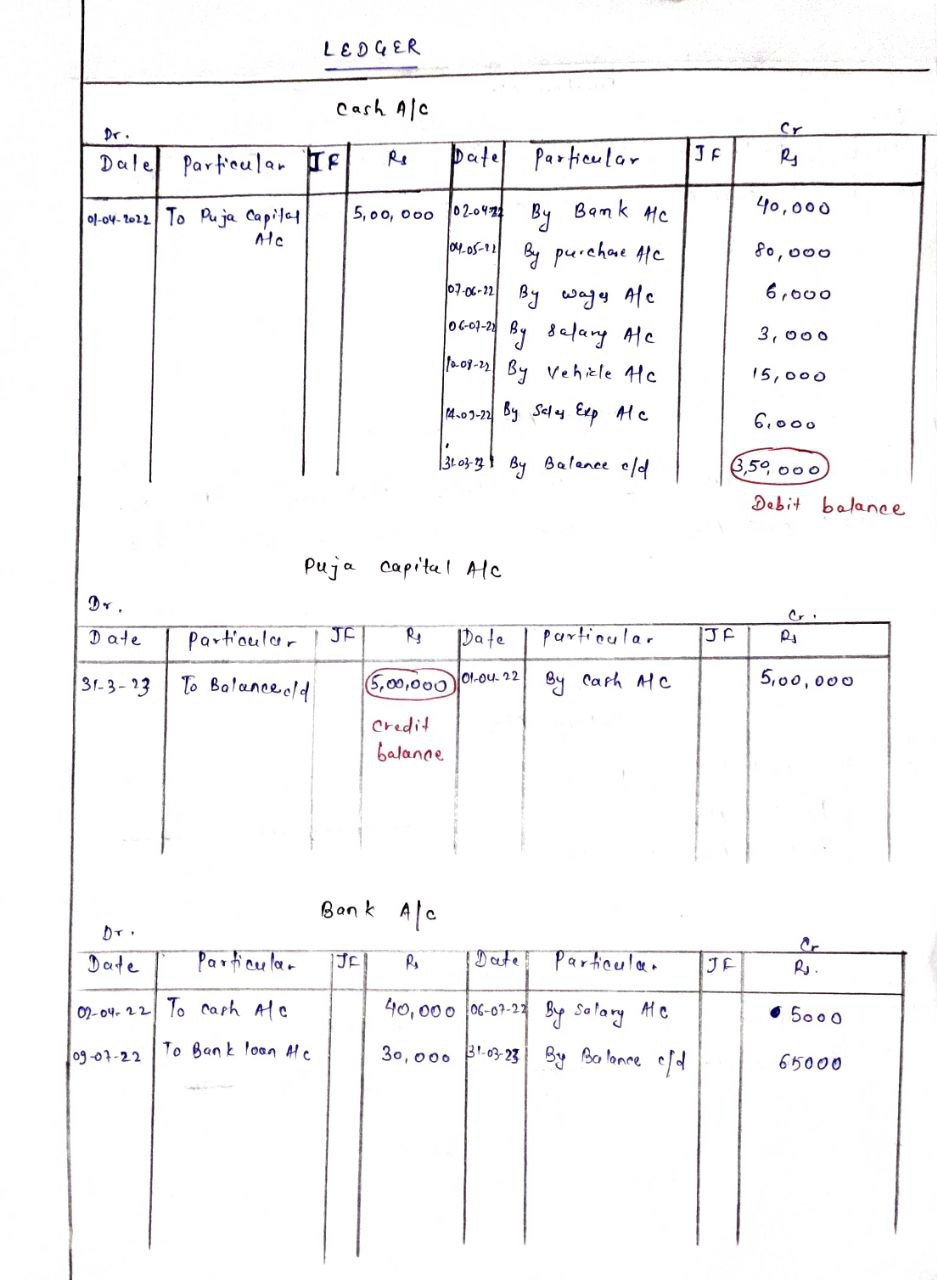 LEDGER
Cash A/c
Dr. Cr
Date Particular JF Rs Date Particular JF Rs
01-04-2022 To Puja Capital A/c 5,00,000 02-04-22 By Bank A/c 40,000
04-05-22 By purchase A/c 80,000
07-06-22 By wages A/c 6,000
06-07-22 By Salary A/c 3,000
By Vehicle A/c 15,000
14-09-22 By Sales Exp A/c 6,000
31-03-23 By Balance c/d 3,50,000
Debit balance
Puja capital A/c
Dr. Cr.
Date Particular JF Rs Date Particular JF Rs
31-3-23 To Balance c/d 5,00,000 01-04-22 By Cash A/c 5,00,000
Credit
balance
Bank A/c
Dr. Cr
Date Particular JF Rs Date Particular JF Rs.
02-04-22 To Cash A/c 40,000 06-07-22 By Salary A/c 5000
09-07-22 To Bank loan A/c 30,000 31-03-23 By Balance c/d 65000